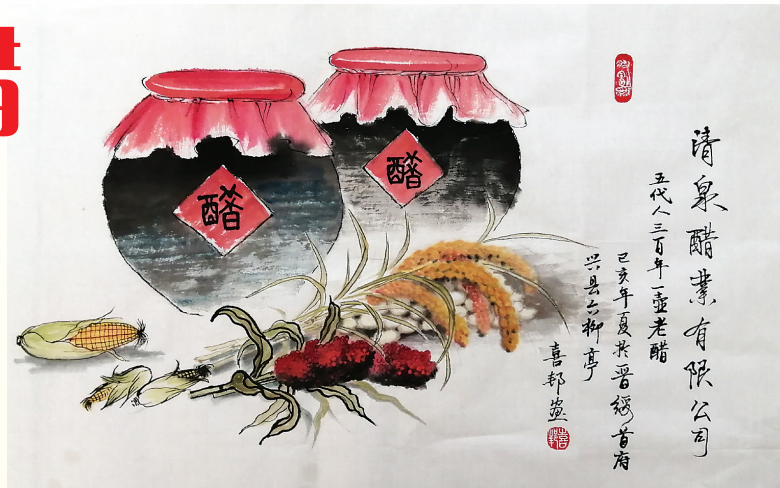 清泉醋業有限公司
五代人三百年一壶老醋
己亥年夏於晋綏首府
兴县六柳亭
喜邦画
醋
醋